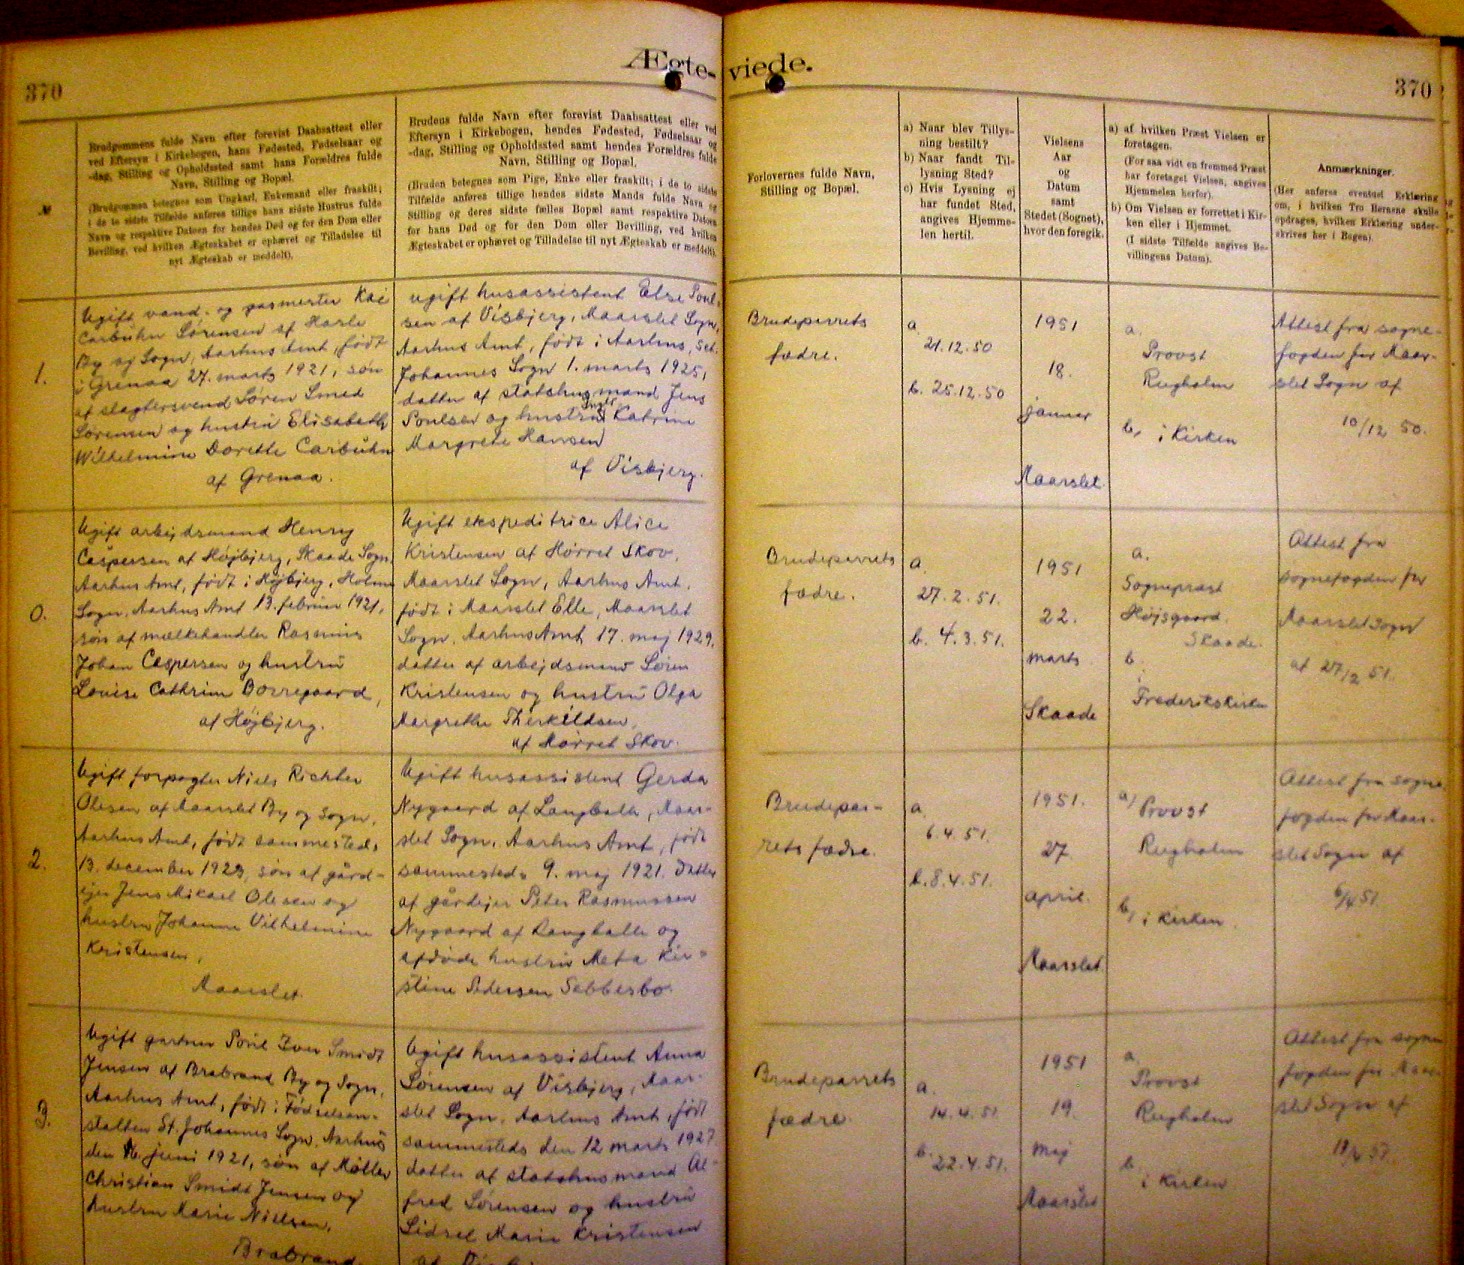 Ægte-viede.
370
370
№
Brudgommens fulde Navn efter forevist Daabsattest eller
ved Eftersyn i Kirkebogen, hans Fødested, Fødselsaar og
-dag, Stilling og Opholdssted samt hans Forældres fulde
Navn, Stilling og Bopæl.
(Brudgommen betegnes som Ungkarl, Enkemand eller fraskilt;
i de to sidste Tilfælde anføres tillige hans sidste Hustrus fulde
Navn og respektive Datoen for hendes Død og for den Dom eller
Bevilling, ved hvilken Ægteskabet er ophævet og Tilladelse til
nyt Ægteskab er meddelt).
Brudens fulde Navn efter forevist Daabsattest eller ved
Eftersyn i Kirkebogen, hendes Fødested, Fødselsaar og
-dag, Stilling og Opholdssted samt hendes Forældres fulde
Navn, Stilling og Bopæl.
(Bruden betegnes som Pige, Enke eller fraskilt; i de to sidste
Tilfælde anføres tillige hendes sidste Mands fulde Navn og
Stilling og deres sidste fælles Bopæl samt respektive Datoen
for hans Død og for den Dom eller Bevilling, ved hvilken
Ægteskabet er ophævet og Tilladelse til nyt Ægteskab er meddelt).
Forlovernes fulde Navn,
Stilling og Bopæl.
a) Naar blev Tillys-
ning bestilt?
b) Naar fandt Til-
lysning Sted?
c) Hvis Lysning ej
har fundet Sted,
angives Hjemme-
len hertil.
Vielsens
Aar
og
Datum
samt
Stedet (Sognet),
hvor den foregik.
a) af hvilken Præst Vielsen er
foretagen.
(For saa vidt en fremmed Præst
har foretaget Vielsen, angives
Hjemmelen herfor).
b) Om Vielsen er forrettet i Kir-
ken eller i Hjemmet.
(I sidste Tilfælde angives Be-
villingens Datum).
Anmærkninger.
(Her anføres eventuel Erklæring
om, i hvilken Tro Børnene skulle
opdrages, hvilken Erklæring under-
skrives her i Bogen).
1.
Ugift vand- og gasmester Kai
Carbuhn Sørensen af Harle
By og Sogn, Aarhus Amt, født
i Grenaa 27. marts 1921, søn
af slagtersvend Søren Smed
Sørensen og hustru Elisabeth
Wilhelmine Dorethe Carbuhn
af Grenaa.
Ugift husassistent Else Poul-
sen af Visbjerg, Maarslet Sogn,
Aarhus Amt, født i Aarhus, Sct.
Johannes Sogn 1. marts 1925,
datter af statshusmand Jens
Poulsen og hustru Inger Katrine
Margrete Hansen
af Visbjerg.
Brudeparrets
fædre.
a.
21.12.50
b. 25.12.50
1951
18.
januar
Maarslet
a.
Provst
Rugholm
b, i Kirken
Attest fra sogne-
fogden for Maar-
slet Sogn af
10/12 50.
0.
Ugift arbejdsmand Henry
Caspersen af Højbjerg, Skaade Sogn
Aarhus Amt, født i Højbjerg, Holme
Sogn, Aarhus Amt 13. februar 1921,
søn af mælkehandler Rasmus
Johan Caspersen og hustru
Louise Cathrine Borregaard,
af Højbjerg.
Ugift ekspeditrice Alice
Kristensen af Hørret Skov,
Maarslet Sogn, Aarhus Amt,
født i Maarslet Elle, Maarslet
Sogn, Aarhus Amt 17. maj 1929,
datter af arbejdsmand Søren
Kristensen og hustru Olga
Margrethe Therkildsen,
af Hørret Skov.
Brudeparrets
fædre.
a.
27.2.51.
b. 4.3.51.
1951
22.
marts
Skaade
a.
Sognepræst
Højsgaard.
Skaade.
b.
i
Frederikskirken
Attest fra
sognefogden for
Maarslet Sogn
af 27/2 51.
2.
Ugift forpagter Niels Richter
Olesen af Maarslet By og Sogn,
Aarhus Amt, født sammesteds
13. december 1923, søn af gård-
ejer Jens Mikael Olesen og
hustru Johanne Vilhelmine
Kristensen,
Maarslet.
Ugift husassistent Gerda
Nygaard af Langballe, Maar-
slet Sogn, Aarhus Amt, født
sammesteds 9. maj 1921. Datter
af gårdejer Peter Rasmussen
Nygaard af Langballe og
afdøde hustru Meta Kir-
stine Pedersen Sebberbo.
Brudepar-
rets fædre.
a.
6.4.51.
b. 8.4.51.
1951.
27.
april.
Maarslet.
a, Provst
Rugholm
b, i Kirken.
Attest fra sogne-
fogden for Maar-
slet Sogn af
6/4 51.
3.
Ugift gartner Poul Iver Smidt
Jensen af Brabrand By og Sogn,
Aarhus Amt, født i Fødselsan-
stalten St. Johannes Sogn, Aarhus
den juni 1921, søn af Møller
Christian Smidt Jensen og
hustru Marie Nielsen,
Brabrand.
Ugift husassistent Anna
Sørensen af Visbjerg, Maar-
slet Sogn, Aarhus Amt, født
sammesteds den 12 marts 1927
datter af statshusmand Al-
fred Sørensen og hustru
Sidsel Marie Kristensen
Brudeparrets
fædre.
a.
14.4.51
b. 22.4.51.
1951
19.
maj
Maarslet
a.
Provst
Rugholm
b.
i Kirken
Attest fra sogne
fogden for Maar-
slet Sogn af